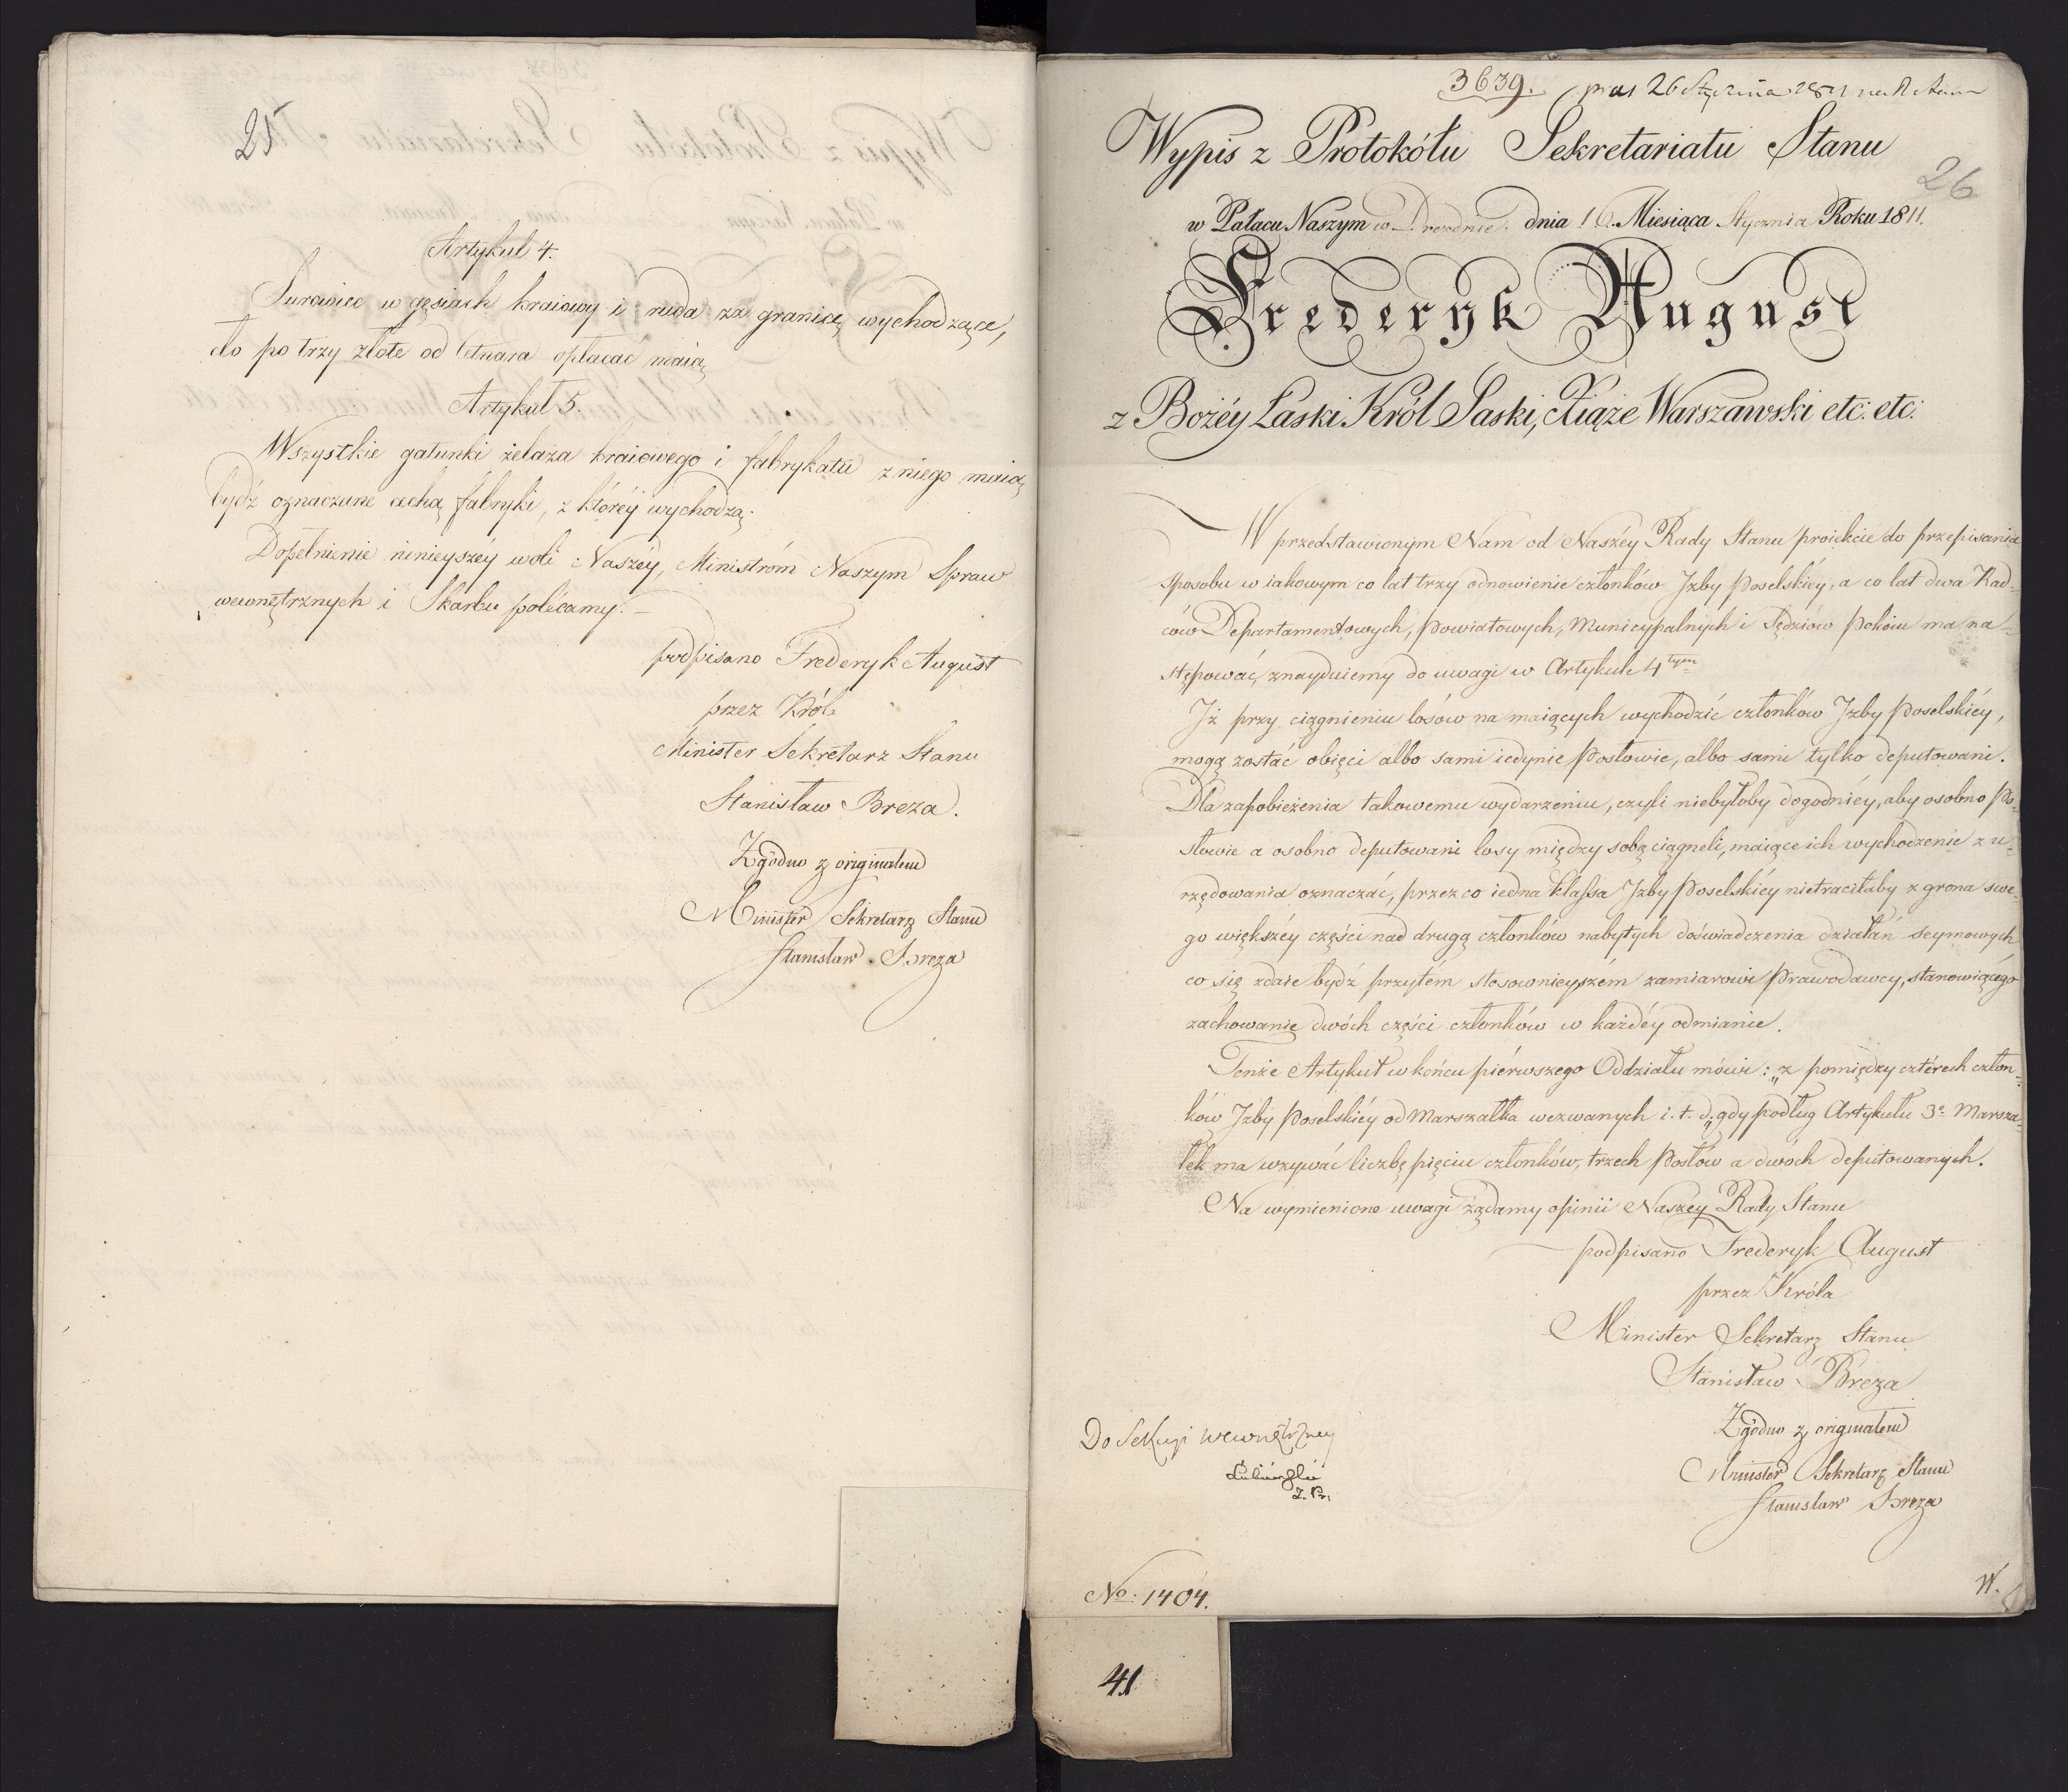 25
Artykuł 4.
Surowiec w gęsiach kraiowy i ruda za granicę wychodzące,
cło po trzy złote od Cetnara opłacać maią
Artykuł 5.
Wszystkie gatunki żelaza kraiowego i fabrykatu z niego maią
bydź oznaczone cechą fabryki, z któréy wychodzą.
Dopełnienie ninieyszéy woli Naszéy, Ministróm Naszym Spraw
wewnętrznych i Skarbu polécamy. —
podpisano Frederyk August
przez Króla
Minister Sekretarz Stanu
Stanisław Breza.
Zgodno z originałem
Minister Sekretarz Stanu
Stanisław Breza
3639. 26 Stycznia 1811
Wypis z Protokółu Sekretariatu Stanu
26
w Pałacu Naszym w Dreźnie. dnia 16. Miesiąca Stycznia Roku 1811.
Frederyk August
z Bożéy Łaski Król Saski, Xiąże Warszawski etc: etc:
W przedstawionym Nam od Naszéy Rady Stanu proiekcie do przepisania
sposobu w iakowym co lat trzy odnowienie członków Jzby Poselskiéy, a co lat dwa Rad-
ców Departamentowych, Powiatowych, Municypalnych i Sędziów Pokoiu ma na-
stępować, znayduiemy do uwagi w Artykule 4tym
Jż przy ciągnieniu losów na maiących wychodzić członków Jzby Poselskiéy,
mogą zostać obięci albo sami iedynie Posłowie, albo sami tylko deputowani.
Dla zapobieżenia takowemu wydarzeniu, czyli niebyłoby dogodniéy, aby osobno Po-
słowie a osobno deputowani losy między sobą ciągneli, maiące ich wychodzenie z u-
rzędowania oznaczać, przez co iedna klassa Jzby Poselskiéy nietraciłaby z grona swe-
go większéy części nad drugą członków nabytych doświadczenia działań seymowych
co się zdaie bydź przytém stosownieyszém zamiarowi Prawodawcy, stanowiącego
zachowanie dwóch części członków w każdéy odmianie.
Tenże Artykuł w końcu piérwszego Oddziału mówi: „z pomiędzy cztérech człon-
ków Jzby Poselskiéy od Marszałka wezwanych i. t. d.„ gdy podług Artykułu 3o Marsza-
łek ma wzywać liczbę pięciu członków, trzech Posłów a dwóch deputowanych.
Na wymienione uwagi żądamy opinii Naszéy Rady Stanu
podpisano Frederyk August
przez Króla
Minister Sekretarz Stanu
Stanisław Breza
Zgodno z originałem
Minister Sekretarz Stanu
Stanisław Breza
Do Sekcyi wewnętrzney
No. 1404.
W.
41